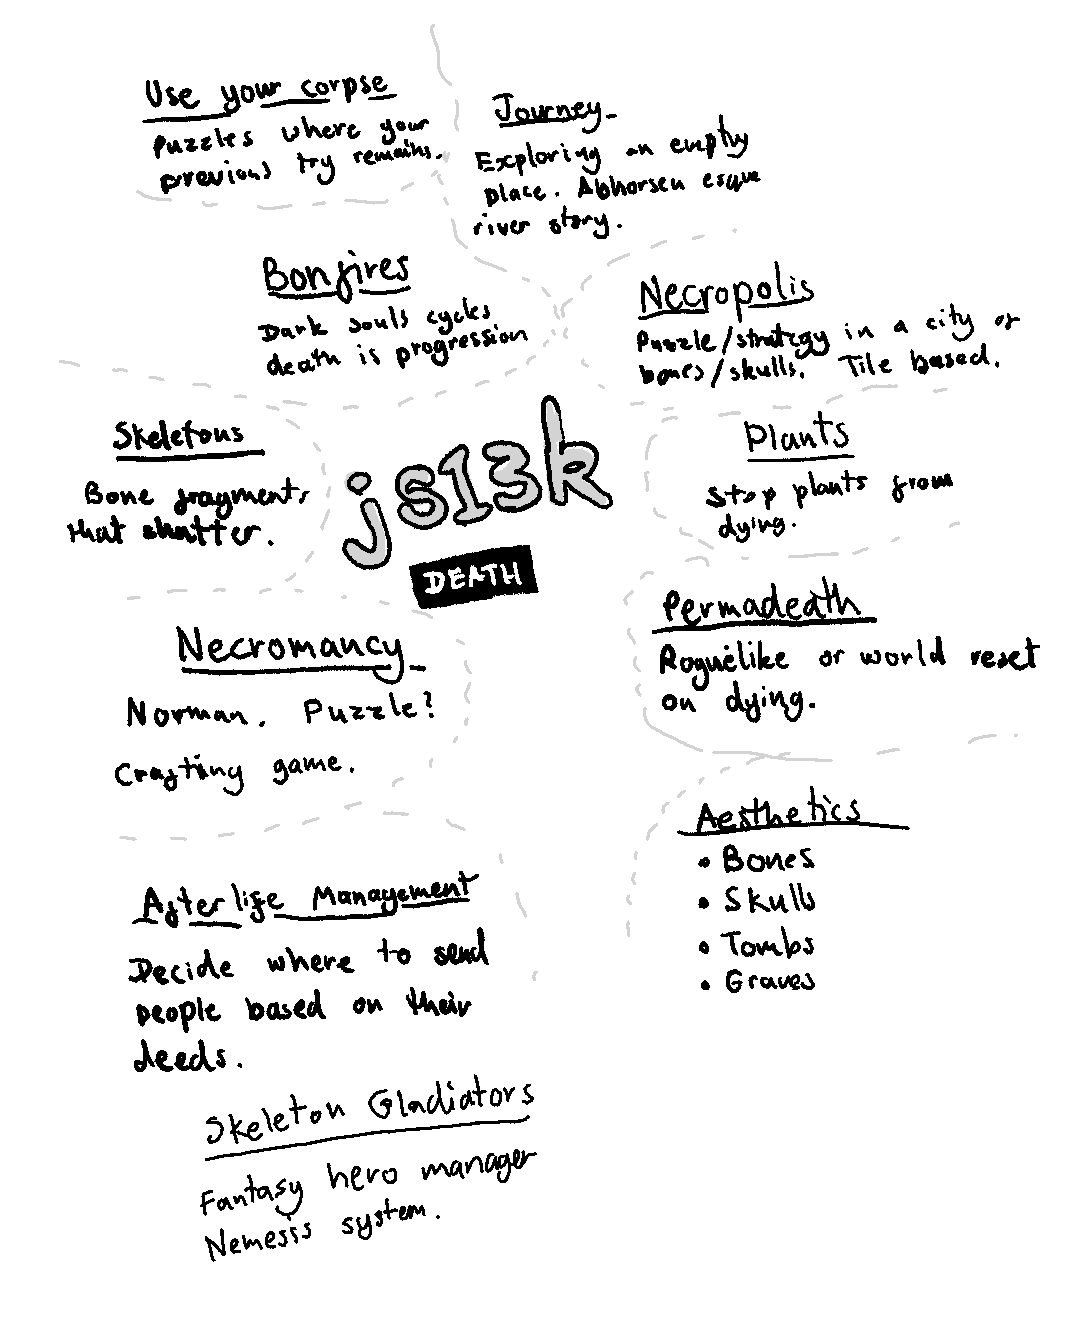 Use your corpse
Puzzles where your
previous try remains.
Journey
Exploring an empty
place. Abhorsen esque
river story.
Bonfires
Dark souls cycles
death is progression
Necropolis
Puzzle/strategy in a city of
bones/skulls. Tile based.
Skeletons
Bone fragments
that shatter.
js13k
DEATH
Plants
Stop plants from
dying.
Permadeath
Roguelike or world reset
on dying.
Necromancy
Norman. Puzzle?
Crafting game.
Aesthetics
• Bones
• Skulls
• Tombs
• Graves
Afterlife Management
Decide where to send
people based on their
deeds.
Skeleton Gladiators
Fantasy hero manager
Nemesis system.